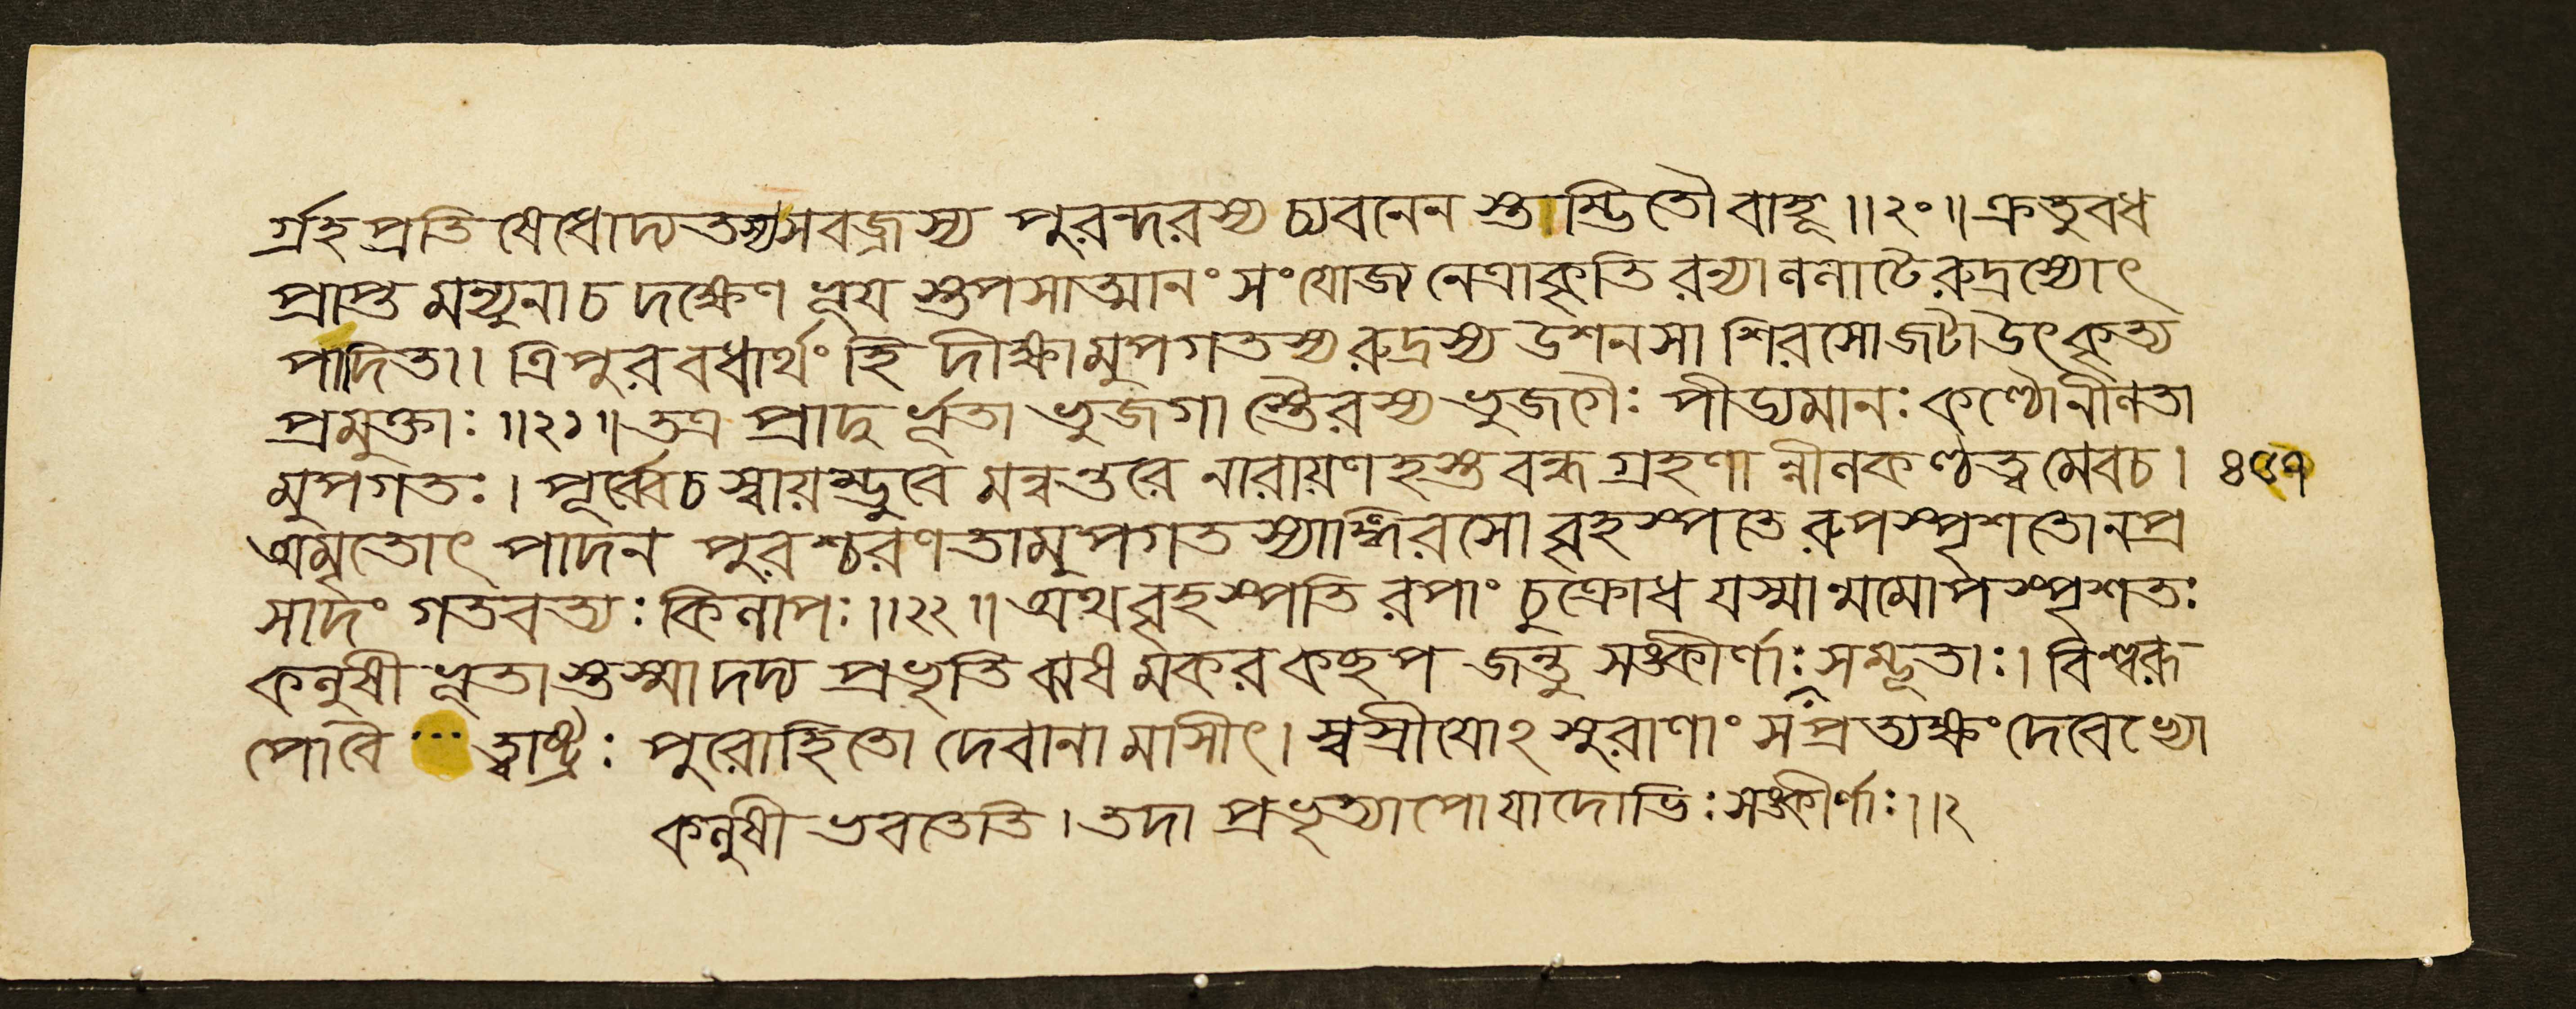 র্গ্রহপ্রতিষেধোদ্যতস্যসবজ্রস্য পুরন্দরস্য চ্যবনেন স্তাম্ভিতৌ বাহূ ॥২০॥ ক্রতুবধ
প্রাপ্তমন্যুনাচ দক্ষেণ ভূয়স্তপসাত্মানং সংযোজ্য নেত্রাকৃতিরন্যাললাটেরুদ্রস্যোৎ
পাদিতা। ত্রিপুরবধার্থং হি দীক্ষামুপগতস্য রুদ্রস্য উশনসা শিরসোজটাউৎকৃত্য
প্রমুক্তাঃ ॥২১॥ তত্র প্রাদুর্ভূতা ভুজগাস্তৈরস্য ভুজগৈঃ পীড্যমানঃ কণ্ঠোনীলতা
মুপগতঃ। পূর্ব্বেচ স্বায়ম্ভুবে মন্বন্তরে নারায়ণহস্তবন্ধগ্রহণান্নীলকণ্ঠত্বমেবচ। ৪৫৭
অমৃতোৎপাদন পুরশ্চরণতামুপগতস্যাঙ্গিরসো বৃহস্পতেরুপস্পৃশতোনপ্র
সাদং গতবত্যঃ কিলাপঃ ॥২২॥ অথবৃহস্পতিরপাং চুক্রোধ যস্মান্মমোপস্পৃশতঃ
কলুষীভূতাস্তস্মাদদ্য প্রভৃতি ঝষমকরকচ্ছপ জন্তু সঙ্কীর্ণাঃ সম্ভূতাঃ। বিশ্বরূ
পোবৈ ত্বাষ্ট্রঃ পুরোহিতো দেবানামাসীৎ। স্বস্রীয়োঽসুরাণাং স প্রত্যক্ষং দেবেভ্যো
কলুষী ভবতেতি। তদা প্রভৃত্যাপোযাদোভিঃ সঙ্কীর্ণাঃ॥২